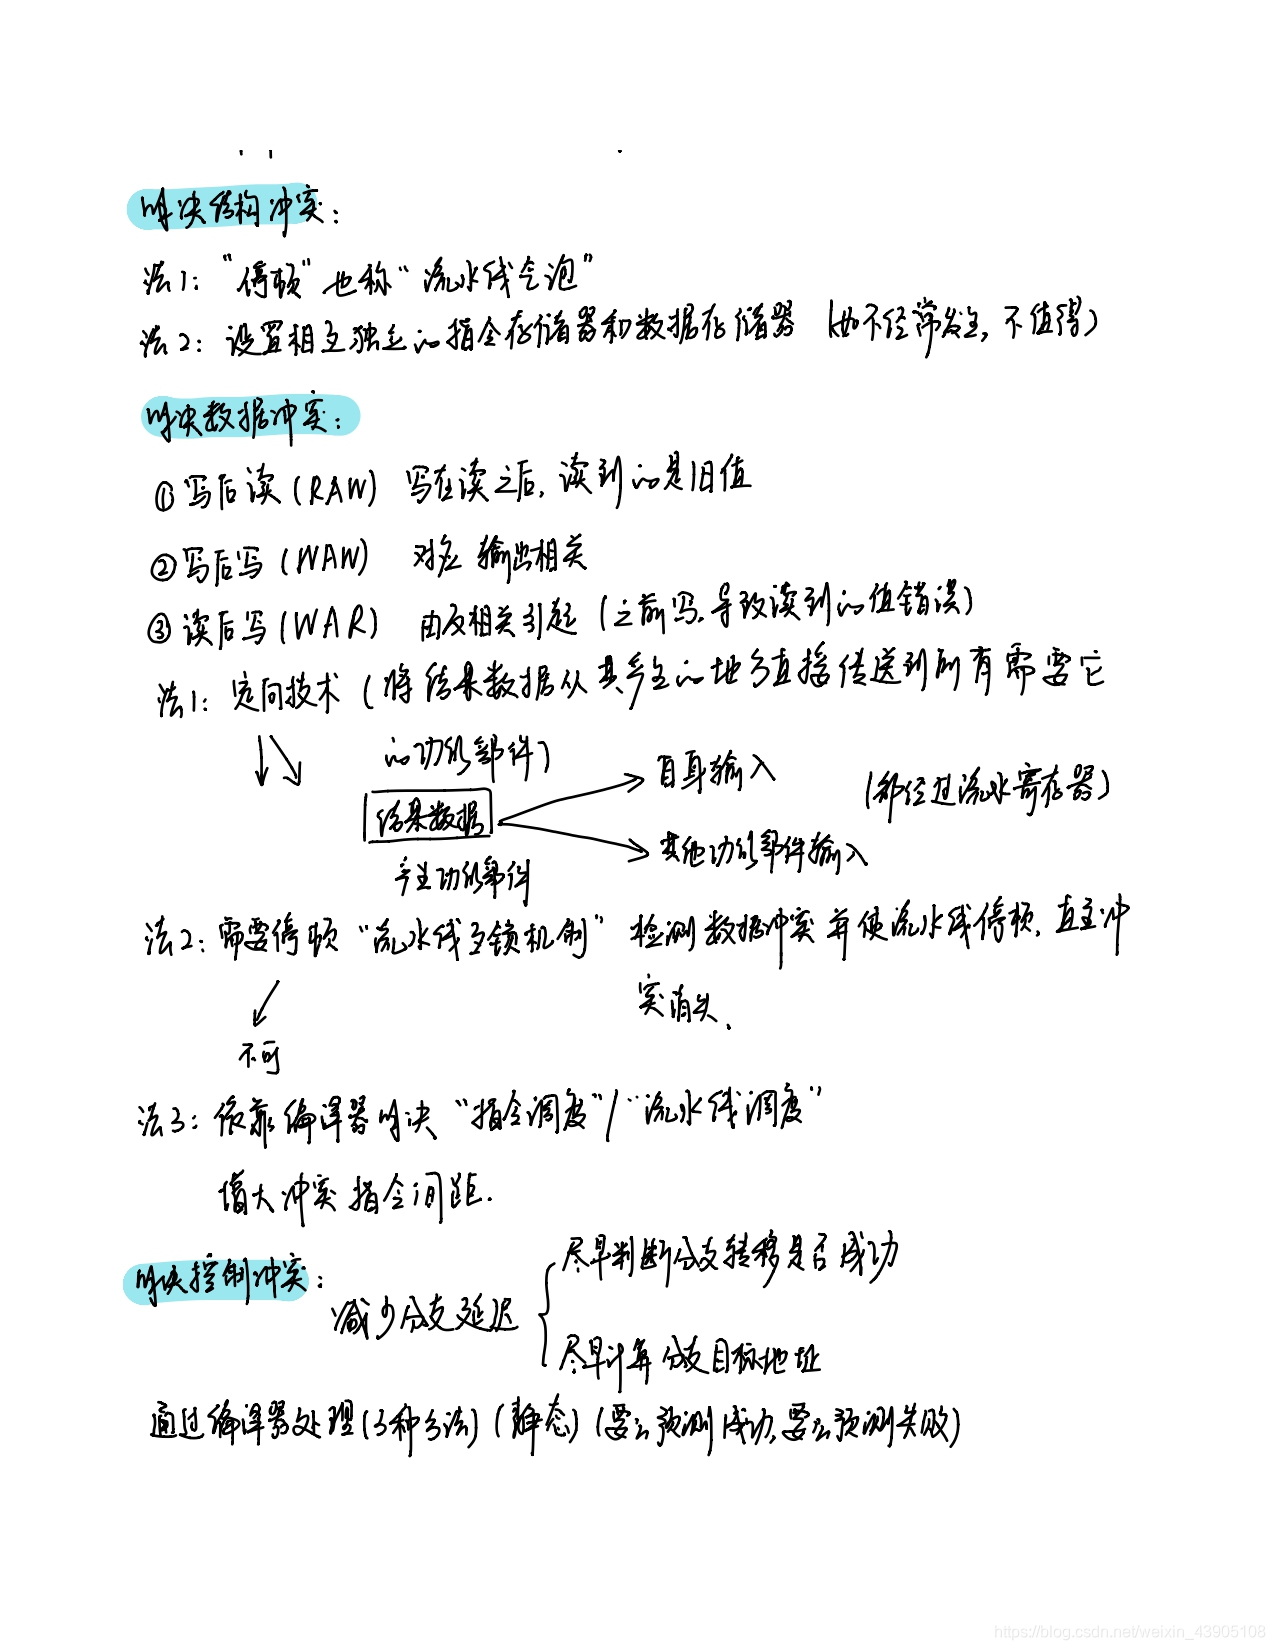 解决结构冲突：
法1："停顿"也称"流水线气泡"
法2：设置相互独立的指令存储器和数据存储器（如不经常发生，不值得）
解决数据冲突：
①写后读（RAW） 写在读之后，读到的是旧值
②写后写（WAW） 对应 输出相关
③读后写（WAR） 由反相关引起（之前写，导致读到的值错误）
法1：定向技术（将结果数据从其产生的地方直接传送到所有需要它
的功能部件）
自身输入
（都经过流水寄存器）
结果数据
其他功能部件输入
产生功能部件
法2：需要停顿"流水线互锁机制" 检测数据冲突并使流水线停顿，直至冲
突消失．
不可
法3：依靠编译器解决"指令调度"/"流水线调度"
增大冲突指令间距．
解决控制冲突：
减少分支延迟
尽早判断分支转移是否成功
尽早计算分支目标地址
通过编译器处理（3种方法）（静态）（要么预测成功，要么预测失败）
https://blog.csdn.net/weixin_43905108